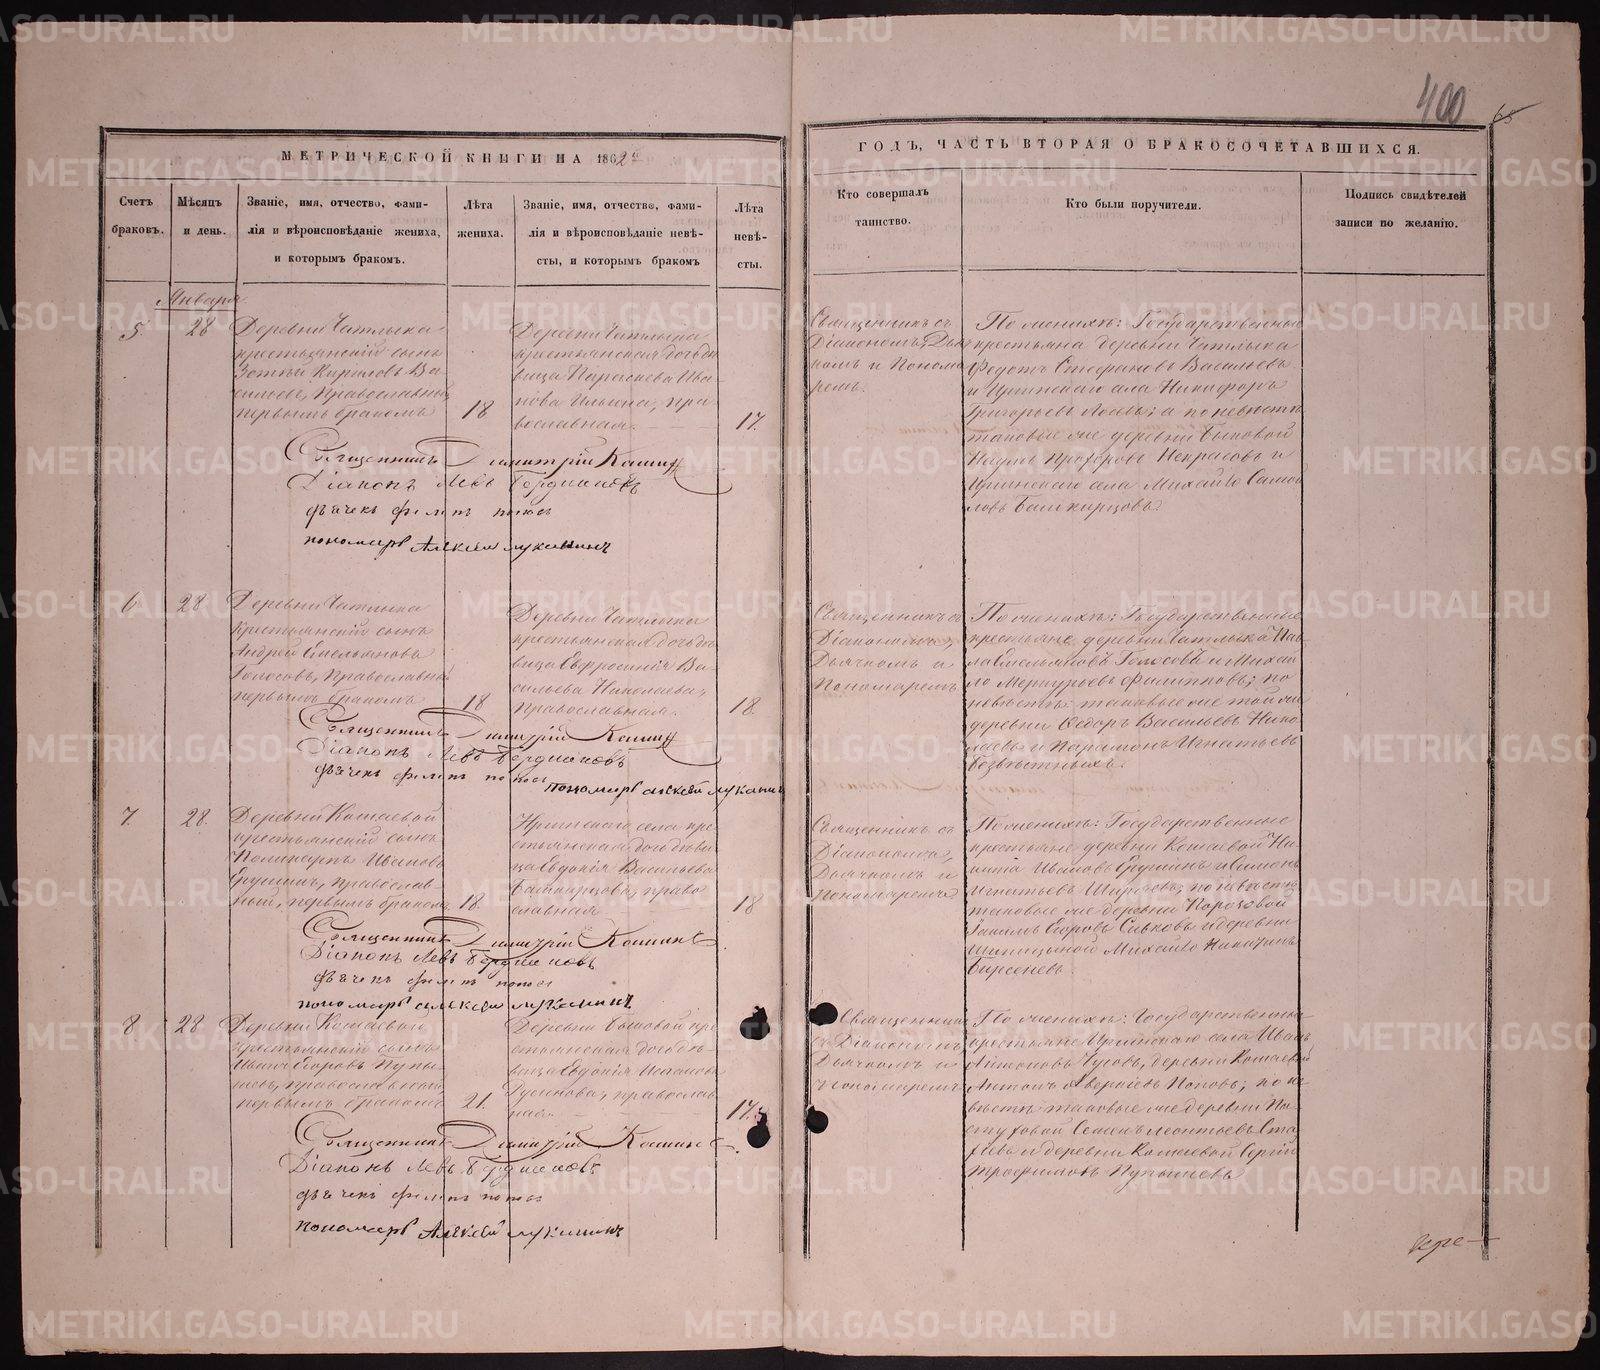 400
65
МЕТРИЧЕСКОЙ КНИГИ НА 1862й
ГОДЪ, ЧАСТЬ ВТОРАЯ О БРАКОСОЧЕТАВШИХСЯ.
Счетъ браковъ.
Мѣсяцъ и день.
Званіе, имя, отчество, фами-
лія и вѣроисповѣданіе жениха,
и которымъ бракомъ.
Лѣта
жениха.
Званіе, имя, отчество, фами-
лія и вѣроисповѣданіе невѣ-
сты, и которымъ бракомъ
Лѣта
невѣ-
сты.
Кто совершалъ
таинство.
Кто были поручители.
Подпись свидѣтелей
записи по желанію.
Января
5.
28
Деревни Чатлыка
крестьянскій сынъ
Зотій Кириловъ Ва
сильевъ, Православный
первымъ бракомъ
18
Деревни Чатлыка
крестьянская дочь дѣ
вица Параскева Ива
нова Ильина, пра
вославная.
17.
Священникъ съ
Діакономъ, Дья
комъ и Понома
ремъ.
По женихѣ: Государственные
крестьяна деревни Чатлыка
Федотъ Стефановъ Васильевъ
и Иргинскаго села Никифоръ
Григорьевъ; а по невѣстѣ
таковые же деревни Быковой
Наумъ Прохоровъ Некрасовъ и
Иргинскаго села Михайло Самой
ловъ Башкирцовъ.
Священникъ Димитрій Кашин
Діаконъ Левъ Бердниковъ
дьячекъ Филипъ попов
пономарь Алексей лукинъ
6
28
Деревни Чатлыка
крестьянскій сынъ
Андрей Емельяновъ
Голосовъ, Православный
первымъ бракомъ
18
Деревни Чатлыка
крестьянская дочь дѣ
вица Евфросинія Ва
сильева Николаева,
Православная.
18.
Священникъ съ
Діакономъ,
Дьячкомъ и
Пономаремъ
По женихѣ: Государственные
крестьяне деревни Чатлыка Пав
ла Емельяновъ Голосовъ и Михай
ло Меркурьевъ Филипповъ; по
невѣстѣ: таковые же той же
деревни Федоръ Васильевъ Нико
лаевъ и Парамонъ Игнатьевъ
Священникъ Димитрій Кашин
Діаконъ Левъ Бердниковъ
дьячекъ Филипъ попов
пономарь алексей лукинъ
7
28.
Деревни Кошаевой
крестьянскій сынъ
Поликарпъ Ивановъ
православ-
ный, первымъ бракомъ
18.
Иргинскаго села кре
стьянская дочь дѣви
ца Евдокія Васильева
Башкирцова, право
славная
18
Священникъ съ
Діакономъ,
Дьячкомъ и
Пономаремъ
По женихѣ: Государственные
крестьяне деревни Кошаевой Ни
Ивановъ и Семенъ
Игнатьевъ по невѣстѣ
таковые же деревни
Егоровъ и деревни
Михайло Никитинъ
Священникъ Димитрій Кашинъ
Діаконъ Левъ Бердниковъ
дьячекъ Филипъ попов
пономарь алексей лукинъ
8
28
Деревни Кошаевой
крестьянскій сынъ
Иванъ Егоровъ Пупы
шевъ, православный
первымъ бракомъ
21.
Деревни Быковой кре
стьянская дочь дѣ-
вица Евдокія
православ
ная.
17.
Священникъ
съ Діакономъ
Дьячкомъ и
Пономаремъ
По женихѣ: Государственные
крестьяне Иргинскаго села Иванъ
Антоновъ Чусовъ, деревни Кошаевой
Антонъ Аверкіевъ Поповъ; по не
вѣстѣ: таковые же деревни Па
стуховой Семенъ Леонтьевъ Ста
и деревни Кошаевой Сергій
Трофимовъ Пупышевъ
Священникъ Димитрій Кашинъ
Діаконъ Левъ Бердниковъ
дьячекъ Филипъ попов
пономарь Алексей лукинъ
METRIKI.GASO-URAL.RU